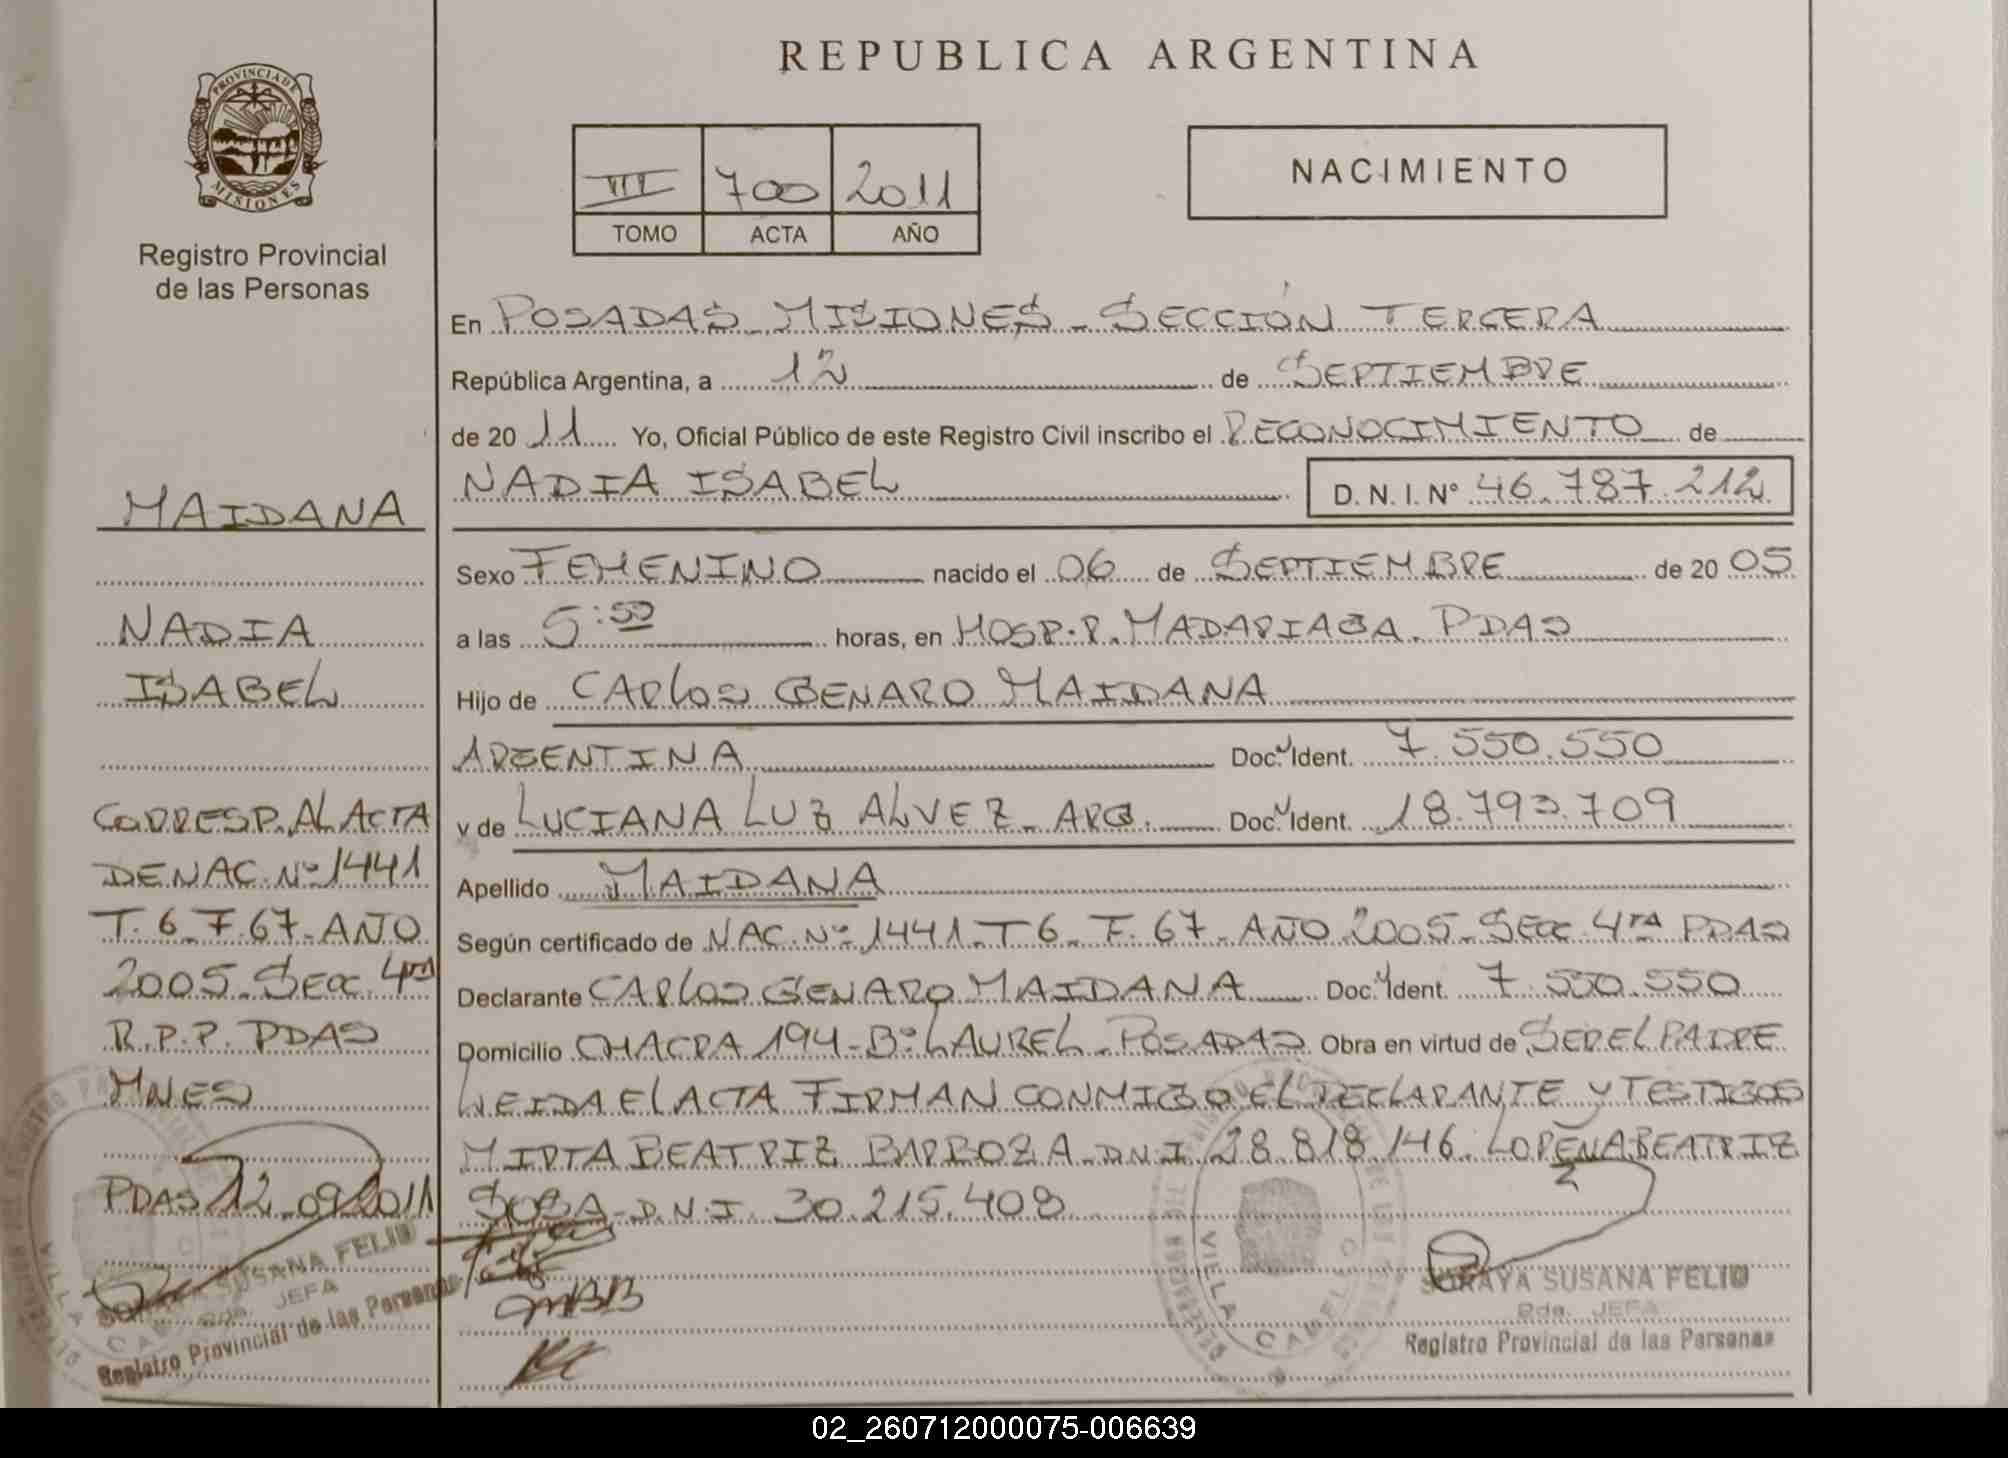 REPUBLICA ARGENTINA
PROVINCIA DE
MISIONES
Registro Provincial
de las Personas
III 700 2011
TOMO ACTA AÑO
NACIMIENTO
En POSADAS - MISIONES - SECCIÓN TERCERA
República Argentina, a 12 de SEPTIEMBRE
de 20 11 Yo, Oficial Público de este Registro Civil inscribo el RECONOCIMIENTO de
NADIA ISABEL D. N. I. Nº 46.787.212
Sexo FEMENINO nacido el 06 de SEPTIEMBRE de 20 05
a las 5:50 horas, en HOSP. R. MADARIAGA. PDAS
Hijo de CARLOS GENARO MAIDANA
ARGENTINA Doc. Ident. 7.550.550
y de LUCIANA LUZ ALVEZ - ARG. Doc. Ident. 18.793.709
Apellido MAIDANA
Según certificado de NAC. Nº 1441 - T 6 - F. 67 - AÑO 2005 - SECC. 4TA PDAS
Declarante CARLOS GENARO MAIDANA Doc. Ident. 7.550.550
Domicilio CHACRA 194 - Bº LAUREL - POSADAS Obra en virtud de SER EL PADRE
LEIDA EL ACTA FIRMAN CONMIGO EL DECLARANTE Y TESTIGOS
MIRTA BEATRIZ BARBOZA D.N.I. 28.818.146. LORENA BEATRIZ
SOSA - D.N.I. 30.215.408
MAIDANA
NADIA
ISABEL
CORRESP. AL ACTA
DE NAC. Nº 1441
T. 6 - F. 67 - AÑO
2005 - SECC. 4TA
R.P.P. PDAS
MNES
PDAS 12-09-2011
SORAYA SUSANA FELIU
Rda. JEFA
Registro Provincial de las Personas
VILLA CABELLO
SORAYA SUSANA FELIU
Rda. JEFA
Registro Provincial de las Personas
VILLA CABELLO
02_260712000075-006639